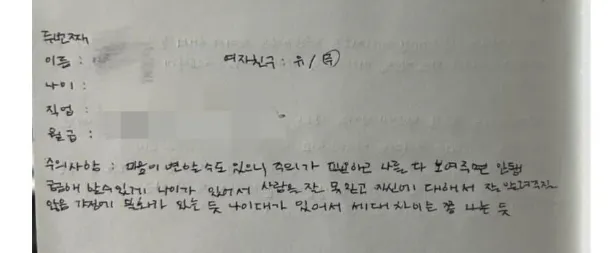 두번째
이름 : 여자친구 : 유 / 무
나이 :
직업 :
월급 :
주의사항 : 마음이 변할수도 있으니 주의가 필요하고 나를 다 보여주면 안됨
궁금해 할수있게 나이가 있어서 사람을 잘 못믿고 자신에 대해서 잘 안알려주
않음 가정에 불화가 있는 듯 나이대가 있어서 세대차이는 쫌 나는 듯